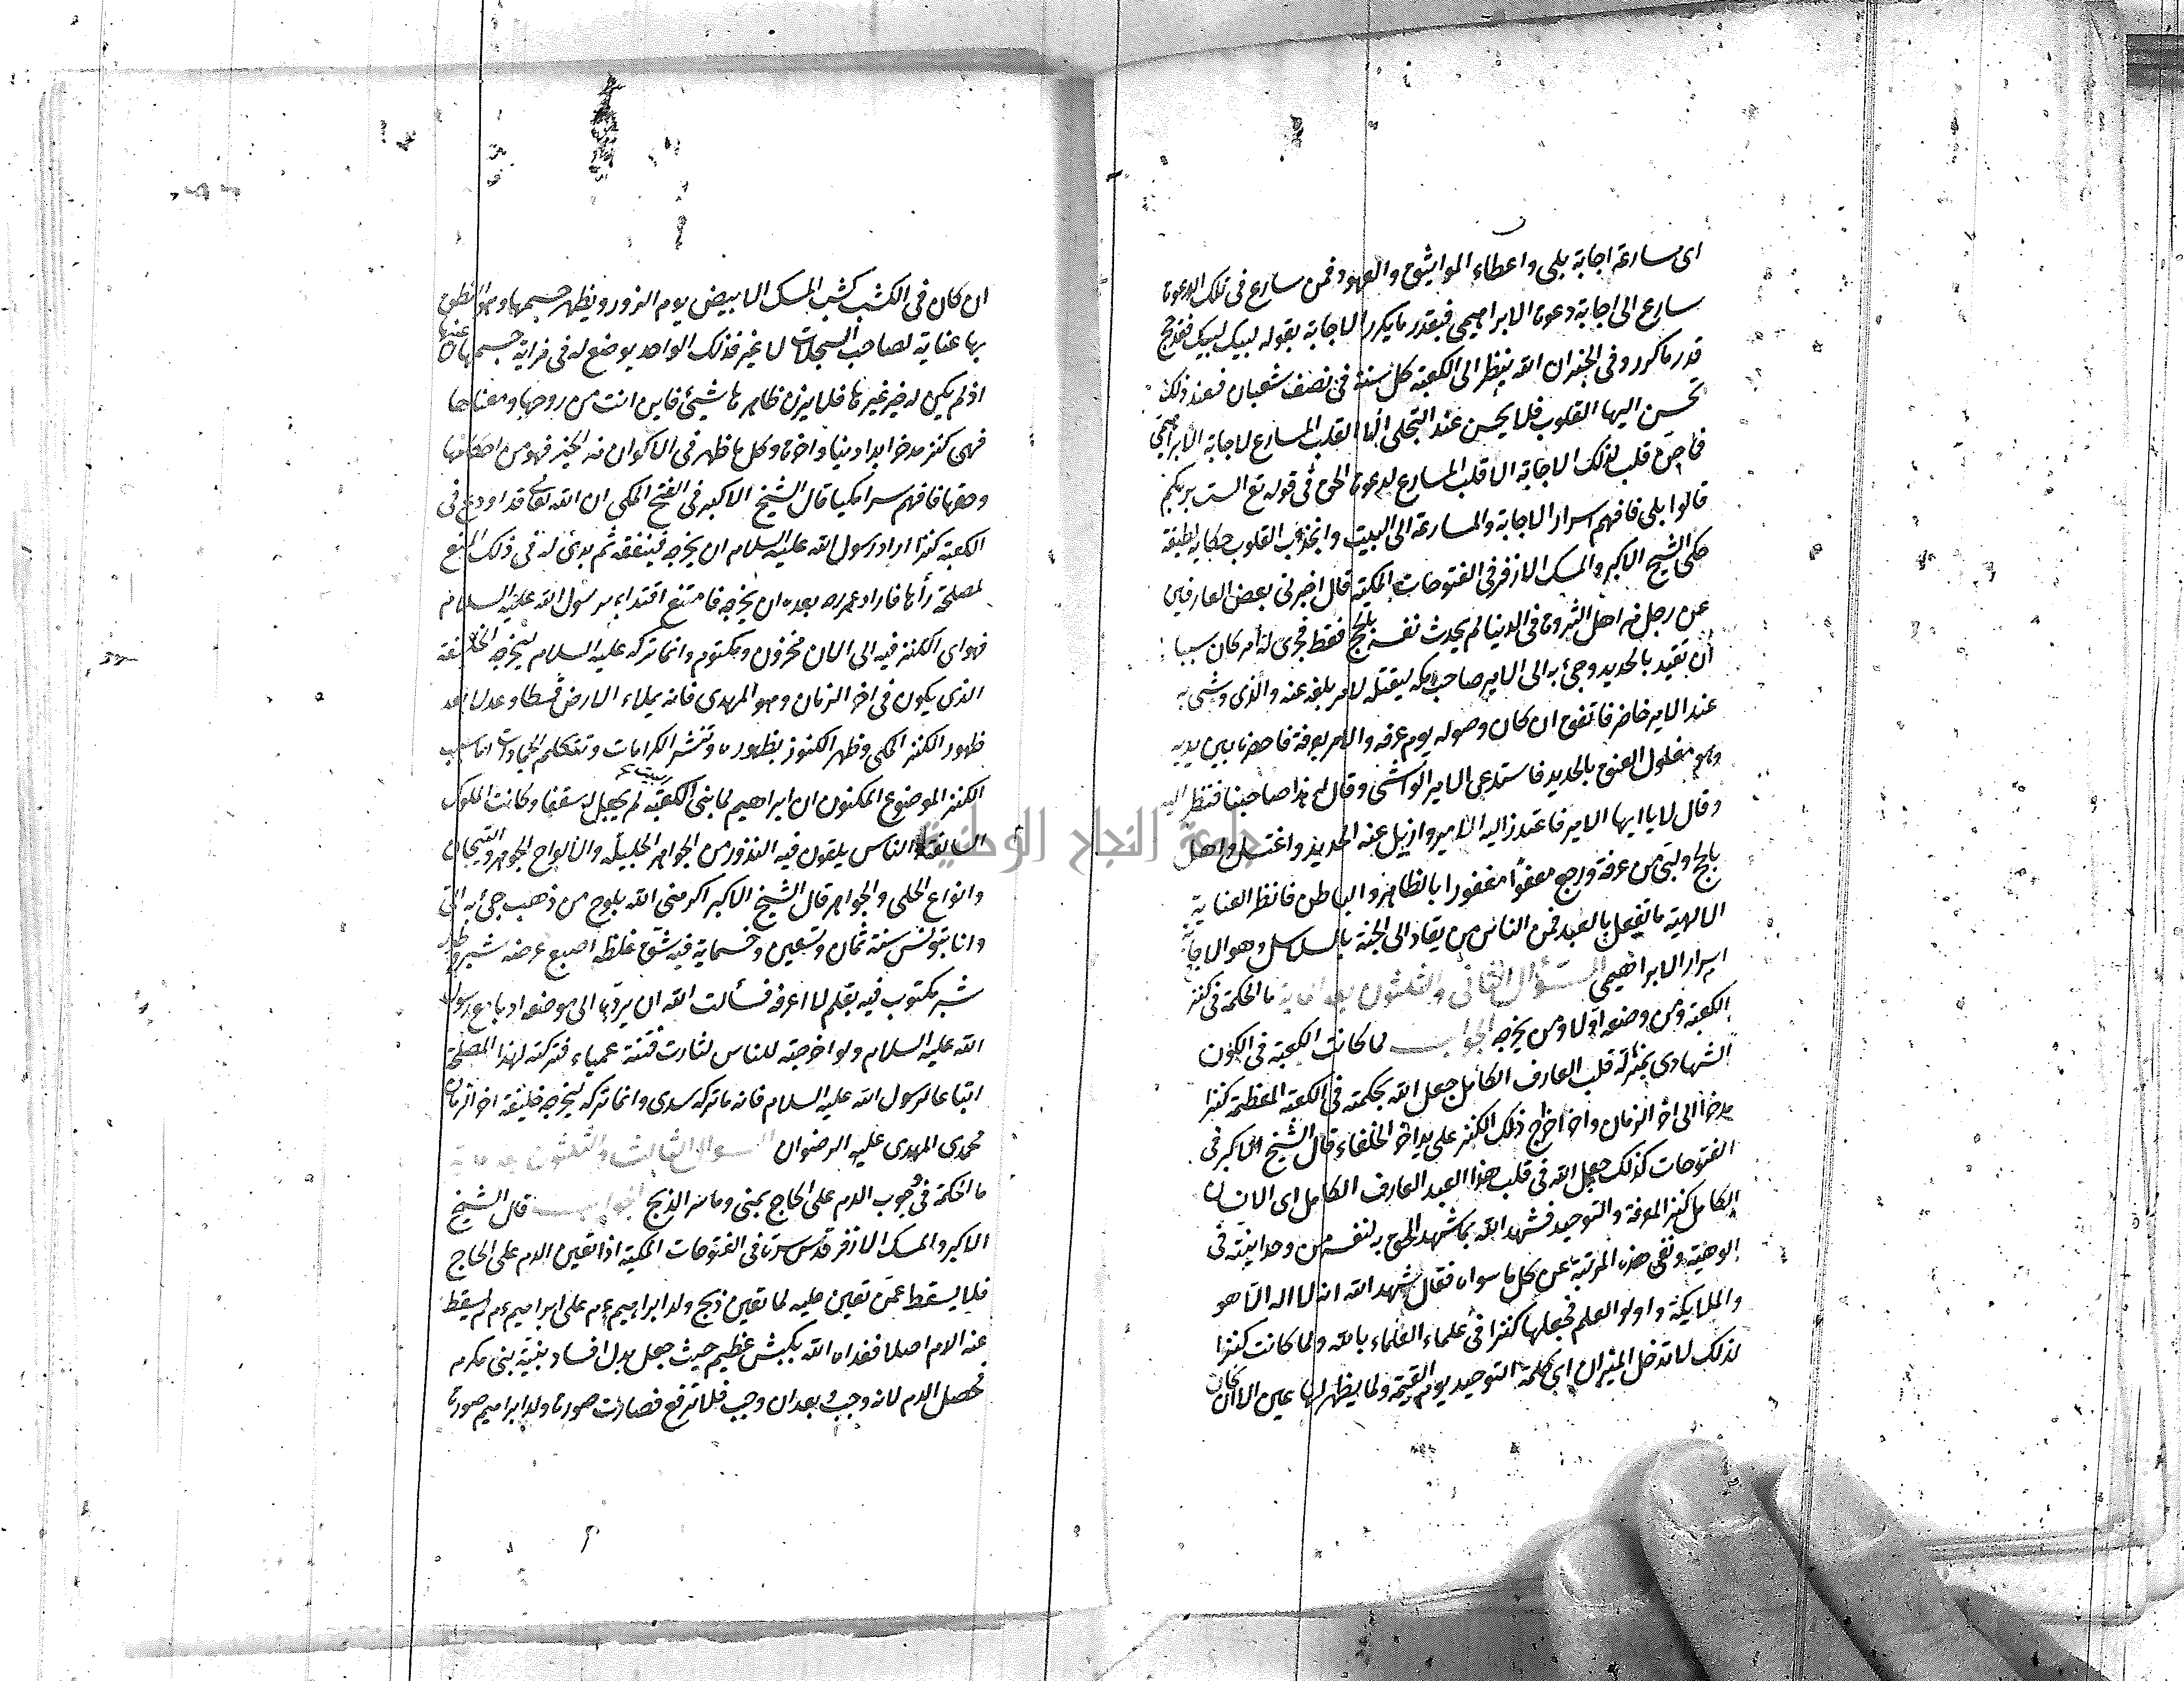 اى مسارعة اجابة بلى واعطاء المواثيق والعهود فمن سارع فى تلك الدعوة
سارع الى اجابة دعوة الابراهيمى فبقدر ما يكرر الاجابة بقوله لبيك لبيك فقد حج
قدر ما كرر وفى الخبر ان الله ينظر الى الكعبة كل سنة فى نصف شعبان فعند ذلك
تحسن اليها القلوب فلا يحسن عند التجلى الا القلب المسارع لاجابة الابراهيمى
فاحن قلب لذلك الاجابة الا قلب المسارع لدعوة الحق فى قوله تع الست بربكم
قالوا بلى فافهم اسرار الاجابة والمسارعة الى البيت وانجذاب القلوب حكاية لطيفة
حكى الشيخ الاكبر والمسك الازفر فى الفتوحات المكية قال اخبرنى بعض العارفين
عن رجل من اهل الثروة فى الدنيا لم يحدث نفسه بالحج فقط فجرى له امر كان سببا
ان تقيد بالحديد وجئ به الى الامير صاحب مكة ليقتله لامر بلغه عنه والذى وشى به
عند الامير حاضر فاتفق ان كان وصوله يوم عرفة والامير بعرفة فاحضر بين يديه
وهو مغلول العنق بالحديد فاستدعى الامير الواشى وقال له هذا صاحبنا فنظر اليه
وقال لا يا ايها الامير فاعتذر اليه الامير وازيل عنه الحديد واغتسل واهل
بالحج ولبى من عرفة ورجع معفوا مغفورا بالظاهر والباطن فانظر العناية
الالهية ما تفعل بالعبد فمن الناس من يقاد الى الجنة بالسلاسل وهو الاجابة
اسرار الابراهيمى السؤال الثانى والثلثون بعد المأية ما الحكمة فى كنز
الكعبة ومن وضعه اولا ومن يخرجه الجواب لما كانت الكعبة فى الكون
الشهادى بمنزلة قلب العارف الكامل جعل الله بحكمته فى الكعبة المعظمة كنزا
مدخرا الى اخر الزمان واخر اخراج ذلك الكنز على يد اخر الخلفاء قال الشيخ الاكبر فى
الفتوحات كذلك جعل الله فى قلب هذا العبد العارف الكامل اى الانسان
الكامل كنز المعرفة والتوحيد فشهد الله بما شهد الحق به لنفسه من وحدانيته فى
الوهيته ونفى هذه المرتبة عن كل ما سواه فقال شهد الله انه لا اله الا هو
والملايكة واولو العلم فجعلها كنزا فى علماء العلماء بالله ولما كانت كنزا
لذلك لا تدخل الميزان اى كلمة التوحيد يوم القيمة ولما يظهر لها عين الا ان كان
ان كان فى الكثب كثيب المسك الابيض يوم الزور ويظهر جسمها وهو النطق
بها عناية لصاحب السجلات لا غير فذلك الواحد يوضع له فى ميزانه جسمها
اذ لم يكن له خير غيرها فلا يزن ظاهرها شيئ فاين انت من روحها ومعناها
فهى كنز مدخر ابدا دنيا واخرة وكل ما ظهر فى الاكوان من الخير فهو من احكامها
وحقها فافهم سرا مكيا قال الشيخ الاكبر فى الفتح المكى ان الله تعالى قد اودع فى
الكعبة كنزا اراد رسول الله عليه السلام ان يخرجه فينفقه ثم بدى له فى ذلك المنع
لمصلحة رأها فاراد عمر رضه بعده ان يخرجه فامتنع اقتداء برسول الله عليه السلام
فهو اى الكنز فيه الى الان مخزون ومكتوم وانما تركه عليه السلام ليخرجه الخليفة
الذى يكون فى اخر الزمان وهو المهدى فانه يملاء الارض قسطا وعدلا بعد
ظهور الكنز المكى وظهر الكنوز بظهوره وتنشر الكرامات وتتكلم الجمادات اما سبب
الكنز الموضوع المكنون ان ابراهيم لما بنى الكعبة لم يجعل له سقفا وكانت الملوك
السالفة والناس يلقون فيه النذور من الجواهر الجليلة والالواح الجوهر والتيجان
وانواع الحلى والجواهر قال الشيخ الاكبر اكرمنى الله بلوح من ذهب جئ به الى
وانا بتونس سنة ثمان وتسعين وخمسماية فيه شق غلظه اصبع عرضه شبر وطوله
شبر مكتوب فيه بقلم لا اعرفه فسألت الله ان يرده الى موضعه ادبا مع رسول
الله عليه السلام ولو اخرجته للناس لثارت فتنة عمياء فتركته لهذا المصلحة
اتباعا لرسول الله عليه السلام فانه ما تركه سدى وانما تركه ليخرجه خليفة اخر الزمان
محمدى المهدى عليه الرضوان السؤال الثالث والثلثون بعد ماية
ما الحكمة فى وجوب الدم على الحاج بمنى وما سر الذبح الجواب قال الشيخ
الاكبر والمسك الازفر قدس سره فى الفتوحات المكية اذا تعين الدم على الحاج
فلا يسقط عمن تعين عليه لما تعين ذبح ولد ابراهيم عم على ابراهيم عم لم يسقط
عنه الدم اصلا ففداه الله بكبش عظيم حيث جعل بدل افساد بنية بنى مكرم
فحصل الدم لانه وجب بعد ان وجب فلا ترفع فصارت صورة ولد ابراهيم صورة
جامعة النجاح الوطنية